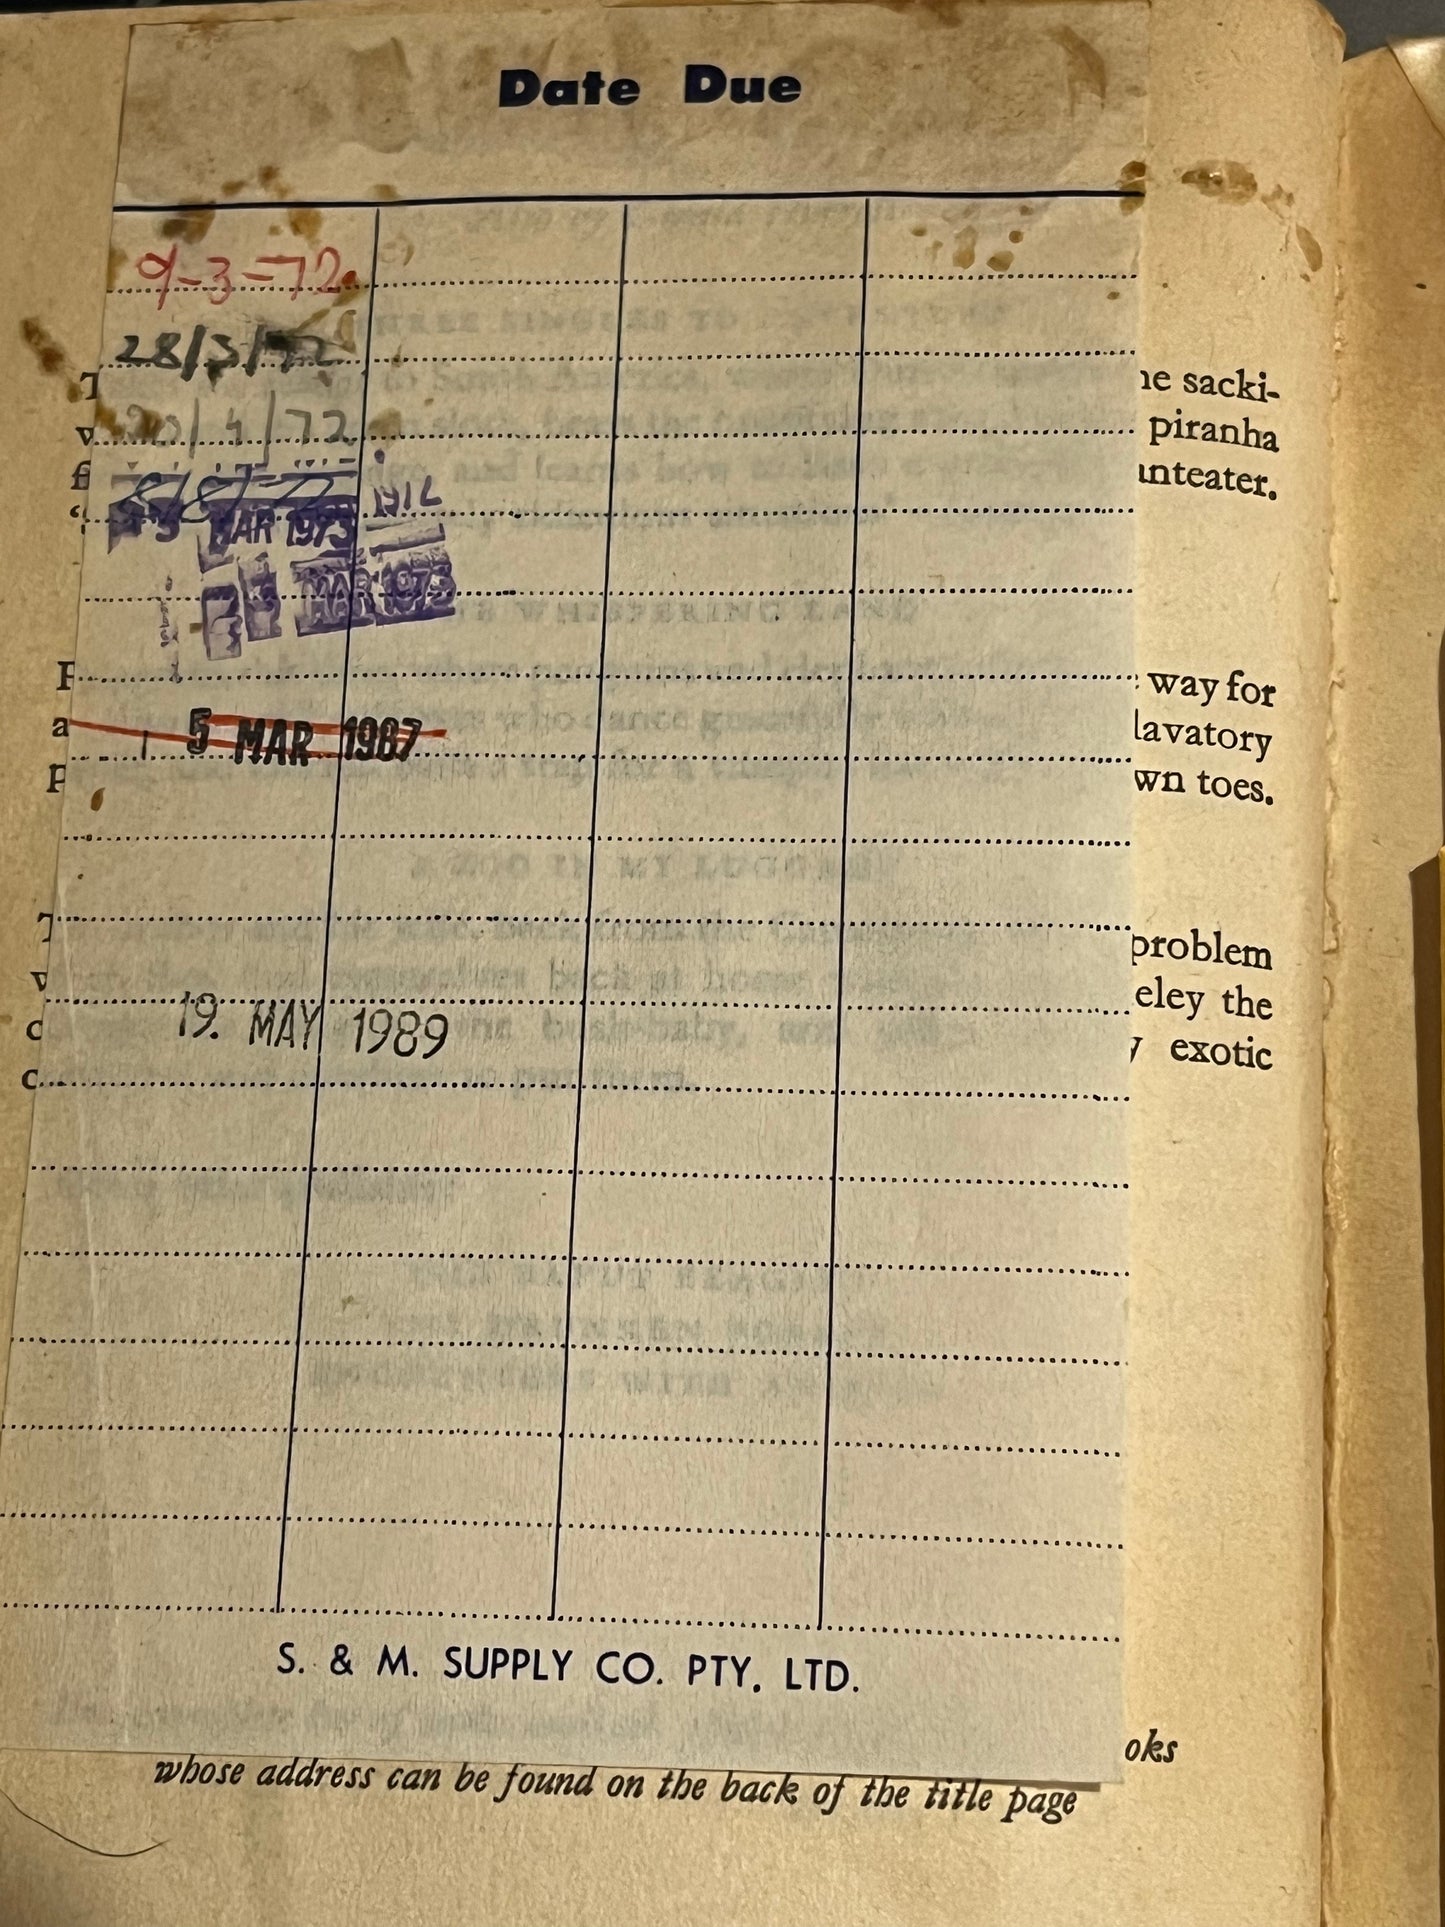 Date Due
9-3=72
28/3/72
20/4/72
1972
MAR 1973
MAR 1973
5 MAR 1987
19. MAY 1989
sacki-
piranha
anteater.
way for
lavatory
toes.
problem
eley the
exotic
S. & M. SUPPLY CO. PTY. LTD.
oks
whose address can be found on the back of the title page